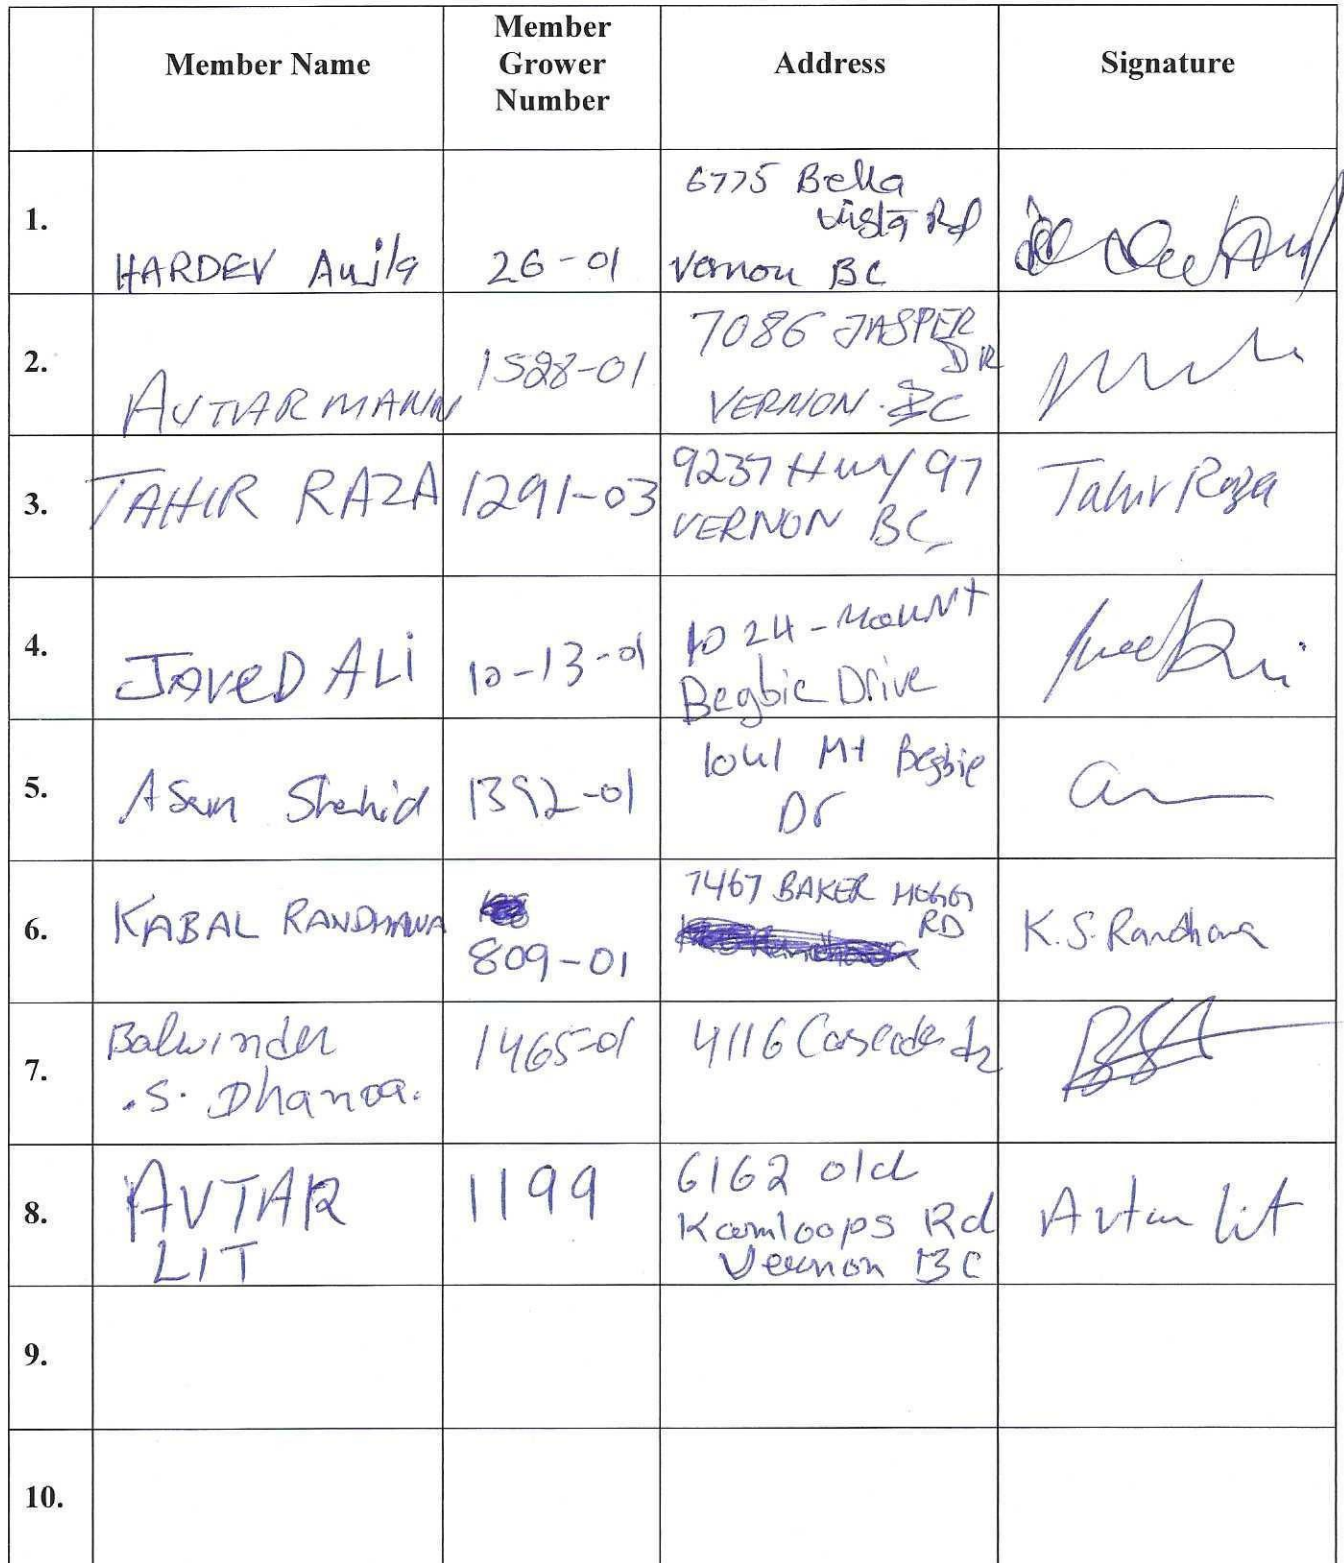 Member Name
Member
Grower
Number
Address
Signature
1.
HARDEV Aujla
26-01
6775 Bella
Vista Rd
Vernon BC
2.
AVTAR MANN
1528-01
7086 JASPER
DR
VERNON BC
3.
TAHIR RAZA
1291-03
9237 HWY 97
VERNON BC
Tahir Raza
4.
JAVED ALI
10-13-01
1024-Mount
Begbie Drive
5.
Asum Shahid
1392-01
1041 Mt Begbie
Dr
6.
KABAL RANDHAWA
809-01
7467 BAKER HOGG
RD
K.S. Randhawa
7.
Balwinder
.S. Dhanoa.
1465-01
4116 Cascade Dr
8.
AVTAR
LIT
1199
6162 old
Kamloops Rd
Vernon BC
Avtar Lit
9.
10.